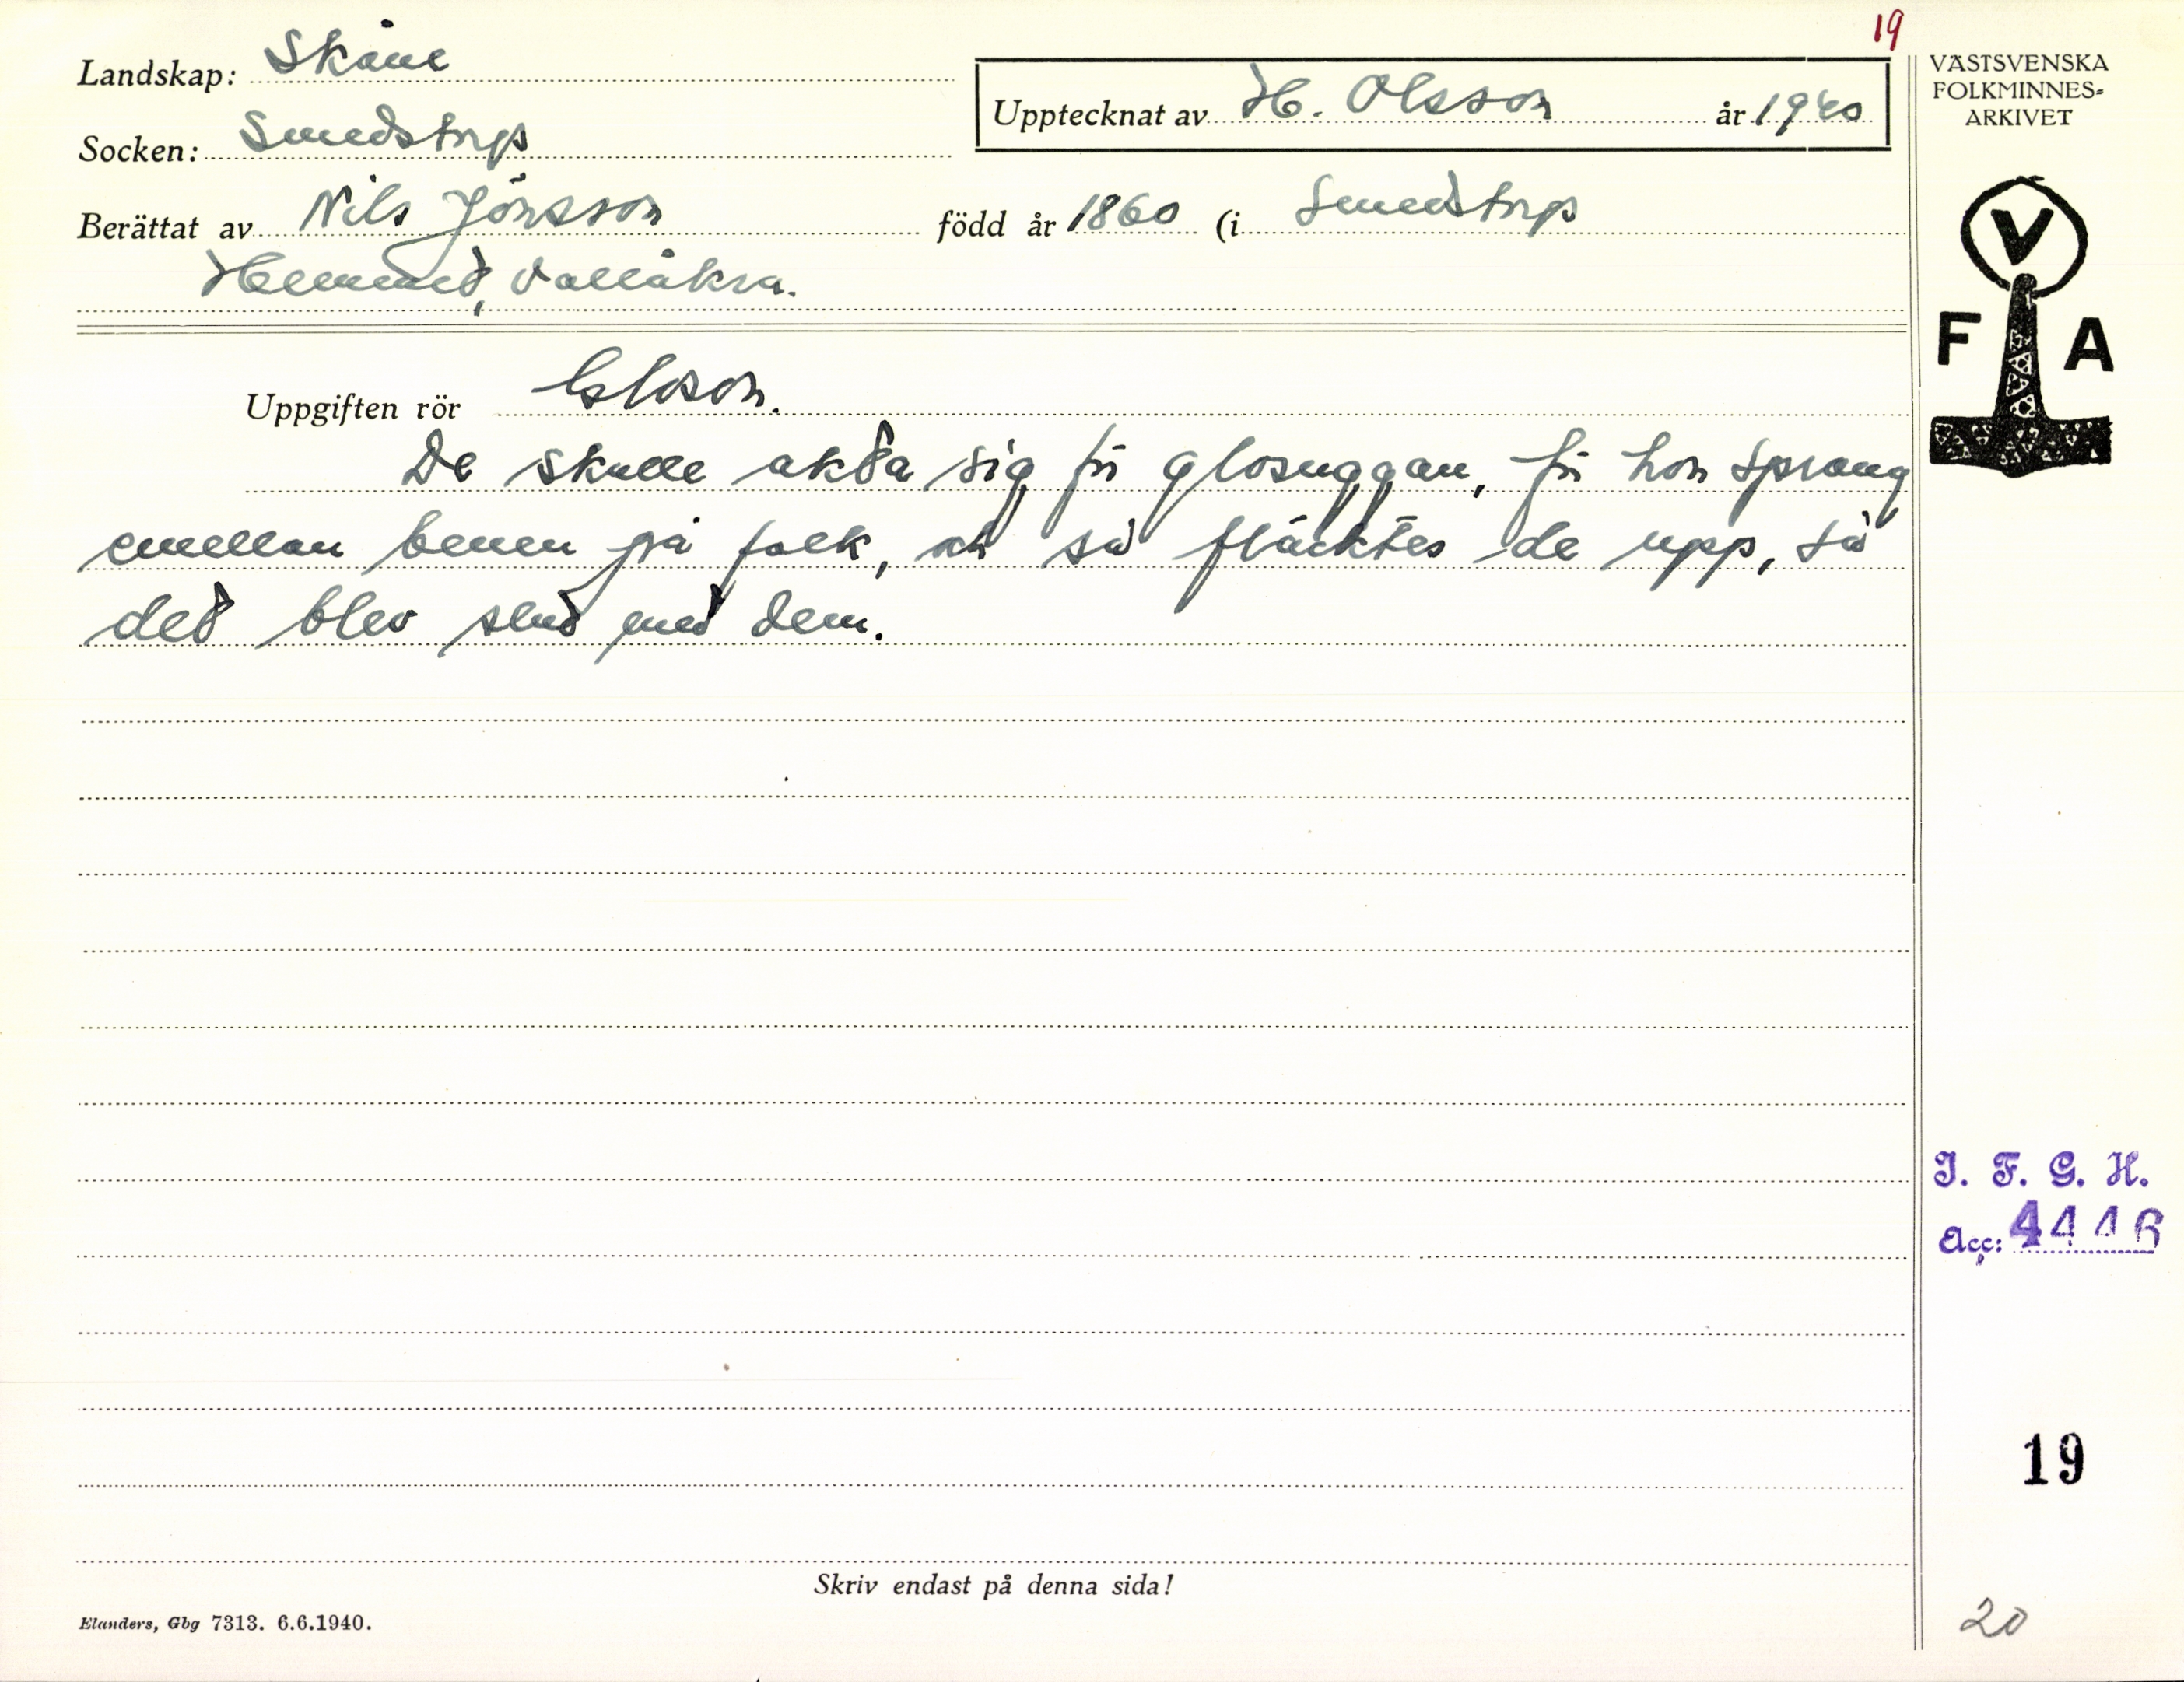 19
Landskap: Skåne
Socken: Smedstorp
Upptecknat av H. Olsson år 1940
Berättat av Nils Jönsson född år 1860 (i Smedstorp
Vallåkra.
VÄSTSVENSKA
FOLKMINNES-
ARKIVET
V
F A
Uppgiften rör Gloson.
De skulle akta sig för glosuggan, för hon sprang
emellan benen på folk, och så fläcktes de upp, så
det blev slut med dem.
I. F. G. H.
Acc: 4446
19
Skriv endast på denna sida!
Elanders, Gbg 7313. 6.6.1940.
20